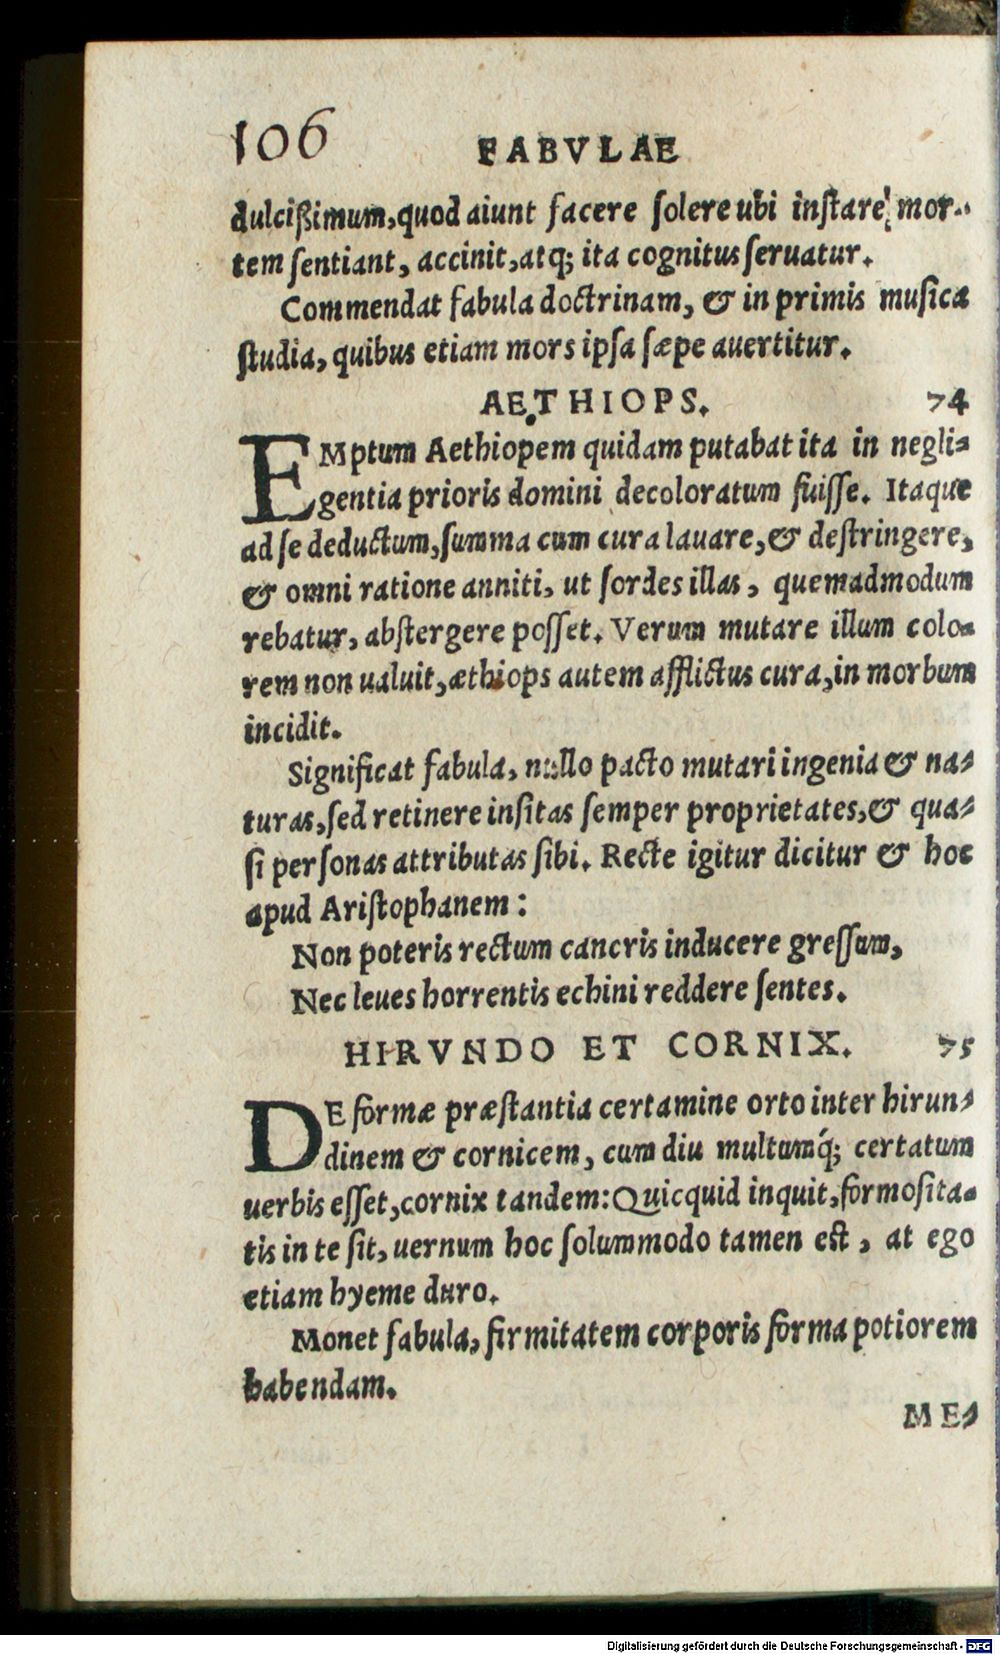 106
FABVLAE
dulcißimum, quod aiunt facere solere ubi instare mor-
tem sentiant, accinit, atq; ita cognitus seruatur.
Commendat fabula doctrinam, & in primis musica
studia, quibus etiam mors ipsa sæpe auertitur.
AETHIOPS. 74
EMptum Aethiopem quidam putabat ita in negli-
gentia prioris domini decoloratum fuisse. Itaque
ad se deductum, summa cum cura lauare, & destringere,
& omni ratione anniti, ut sordes illas, quemadmodum
rebatur, abstergere posset. Verum mutare illum colo-
rem non ualuit, æthiops autem afflictus cura, in morbum
incidit.
Significat fabula, nullo pacto mutari ingenia & na-
turas, sed retinere insitas semper proprietates, & qua-
si personas attributas sibi. Recte igitur dicitur & hoc
apud Aristophanem:
Non poteris rectum cancris inducere gressum,
Nec leues horrentis echini reddere sentes.
HIRVNDO ET CORNIX. 75
DE formæ præstantia certamine orto inter hirun-
dinem & cornicem, cum diu multumq́; certatum
uerbis esset, cornix tandem: Quicquid inquit, formosita-
tis in te sit, uernum hoc solummodo tamen est, at ego
etiam hyeme duro.
Monet fabula, firmitatem corporis forma potiorem
habendam.
ME-
Digitalisierung gefördert durch die Deutsche Forschungsgemeinschaft - DFG